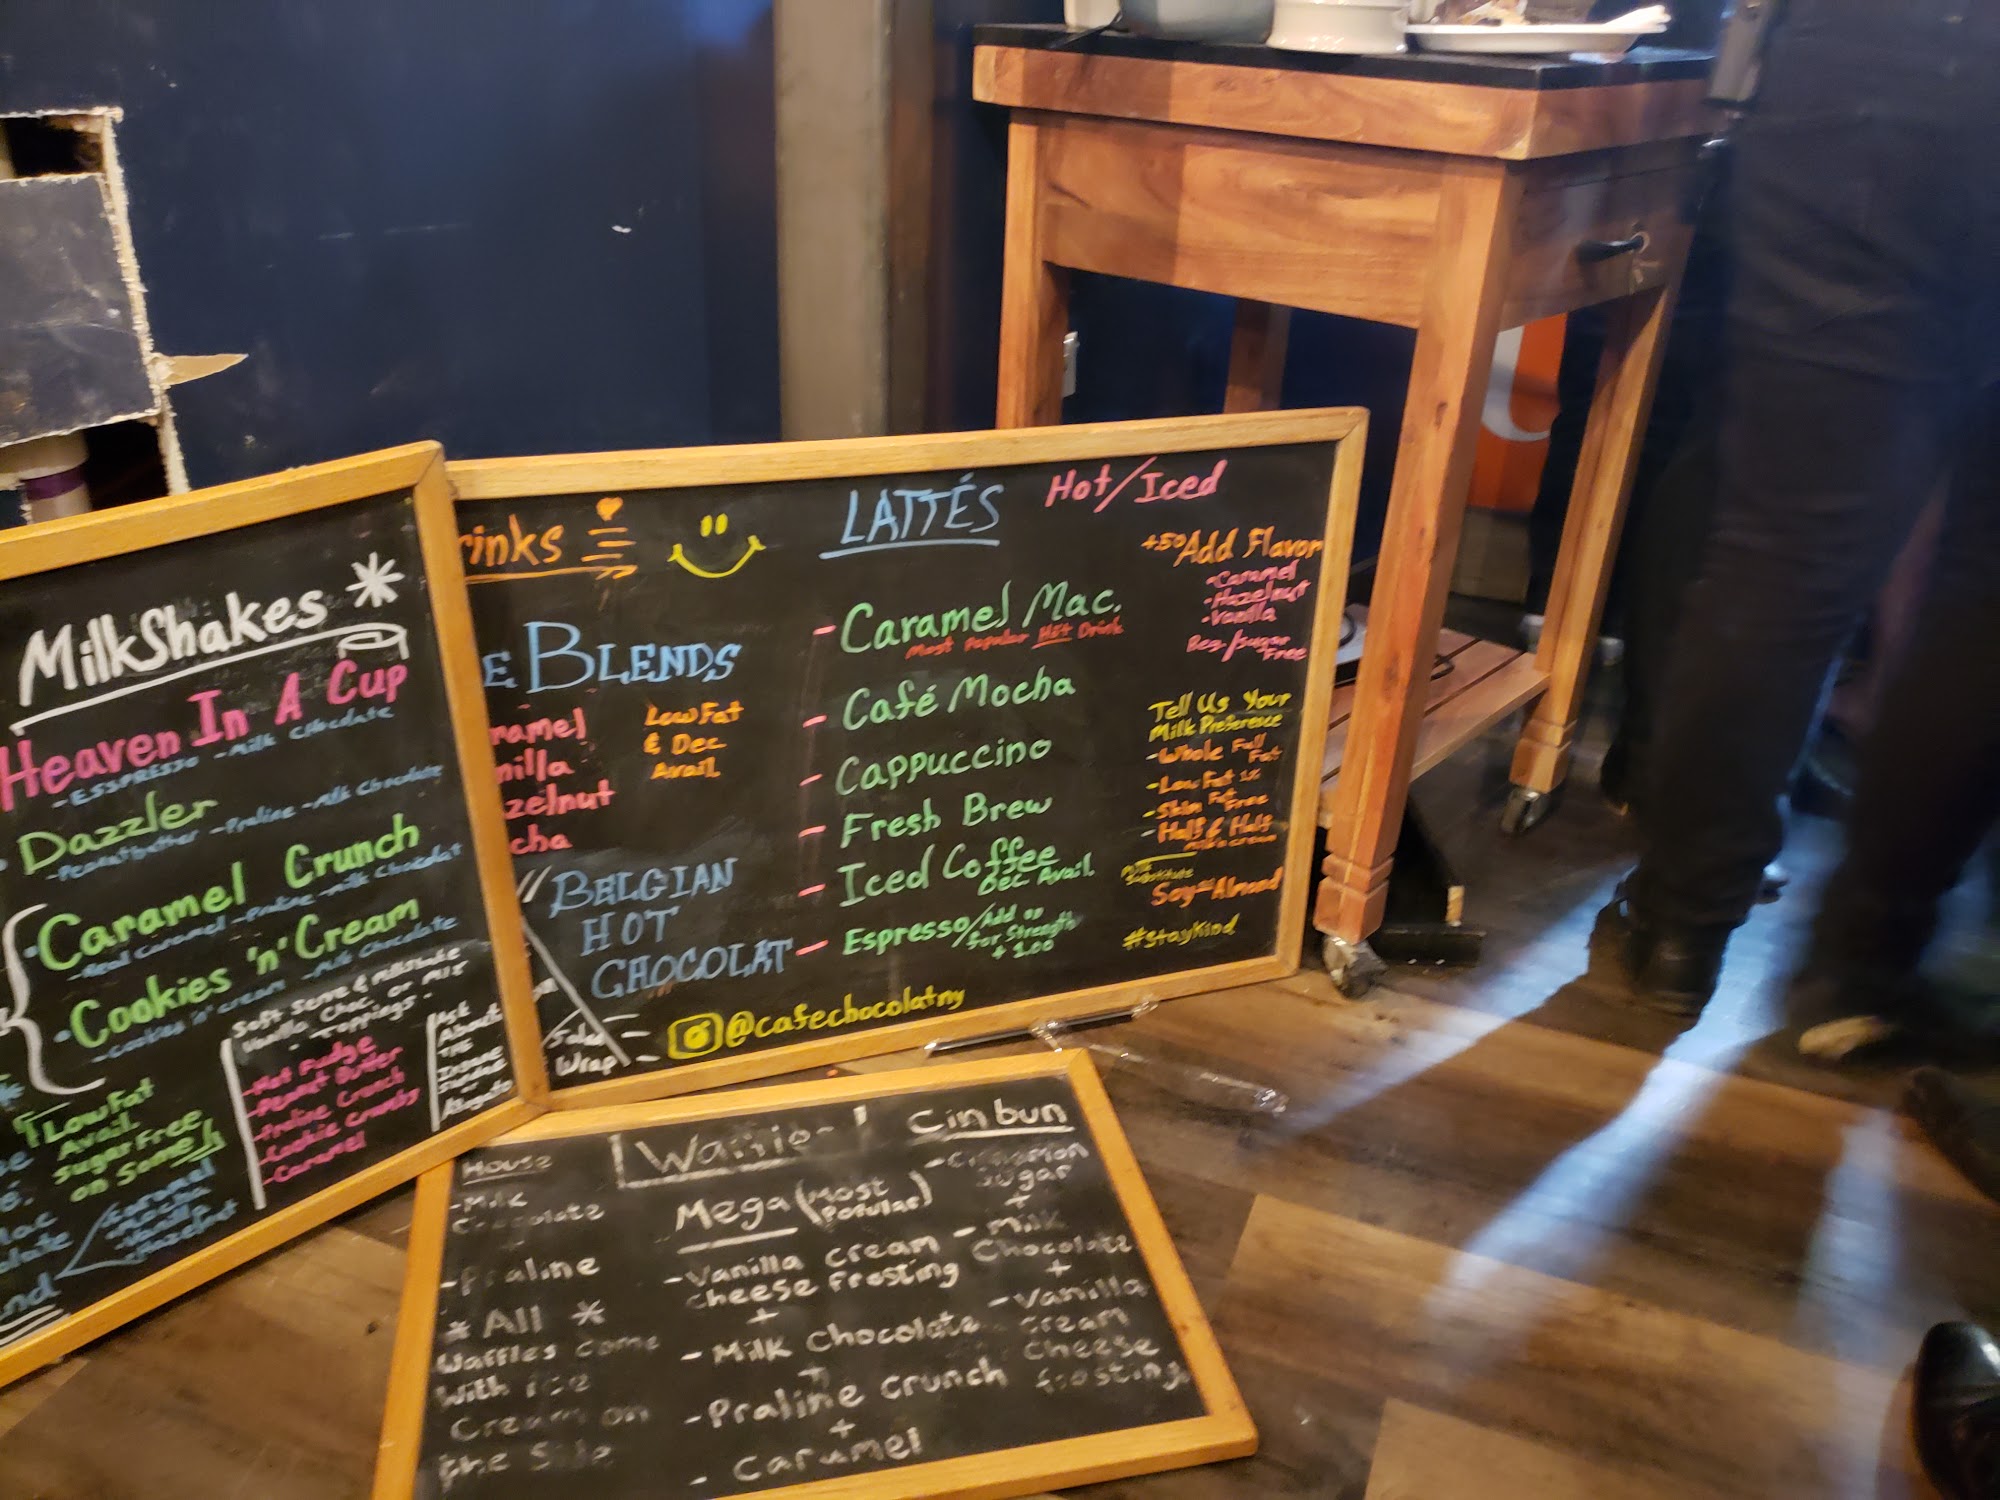 MilkShakes
Heaven In A Cup
- ESSPRESSO - Milk Chocolate
Dazzler
- Peanutbutter - Praline - Milk Chocolate
Caramel Crunch
- Real Caramel - Praline - Milk Chocolat
Cookies 'n' Cream
- cookies 'n' cream - Milk Chocolate
Soft Serve & Milkshake
Vanilla, Choc, or Mix
- Toppings -
- Hot Fudge
- Peanut Butter
- Praline Crunch
- Cookie Crumbs
- Caramel
Ask
About
THE
Insane
Low Fat
Avail.
sugar Free
on Some
Caramel
Mocha
- Vanilla
- Hazelnut
rinks
E BLENDS
ramel
nilla
zelnut
cha
Low Fat
& Dec
Avail.
BELGIAN
HOT
CHOCOLAT
Salad
Wrap
@cafechocolatny
LATTÉS Hot/Iced
- Caramel Mac.
Most Popular Hot Drink
- Café Mocha
- Cappuccino
- Fresh Brew
- Iced Coffee
Dec Avail.
- Espresso/Add on
for Strength
+ 1.00
+50 Add Flavor
- Caramel
- Hazelnut
- Vanilla
Reg./Sugar
Free
Tell Us Your
Milk Preference
- Whole Full
Fat
- Low Fat 1%
- Skim Fat
Free
- Half & Half
Milk & cream
Soy Almond
#StayKind
House
- Milk
Chocolate
- Praline
* All *
Waffles come
With ice
Cream on
the Side
Mega (Most
Popular)
- Vanilla cream
cheese Frosting
+
- Milk Chocolate
+
- Praline crunch
+
- Caramel
Cinbun
- Cinnamon
Sugar
+
- Milk
Chocolate
+
- Vanilla
cream
cheese
frosting